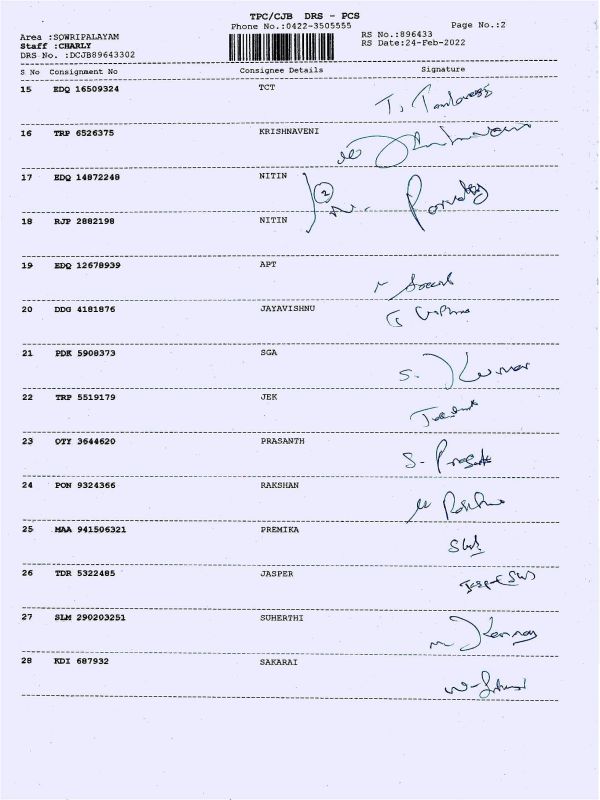 TPC/CJB DRS - PCS
Phone No.:0422-3505555 Page No.:2
Area :SOWRIPALAYAM RS No.:896433
Staff :CHARLY RS Date:24-Feb-2022
DRS No. :DCJB89643302
S No Consignment No Consignee Details Signature
15 EDQ 16509324 TCT
16 TRP 6526375 KRISHNAVENI
17 EDQ 14872248 NITIN
2
18 RJP 2882198 NITIN
19 EDQ 12678939 APT
20 DDG 4181876 JAYAVISHNU
21 PDK 5908373 SGA S. Kumar
22 TRP 5519179 JEK
23 OTY 3644620 PRASANTH
24 PON 9324366 RAKSHAN
25 MAA 941506321 PREMIKA
26 TDR 5322485 JASPER
27 SLM 290203251 SUHERTHI
28 KDI 687932 SAKARAI